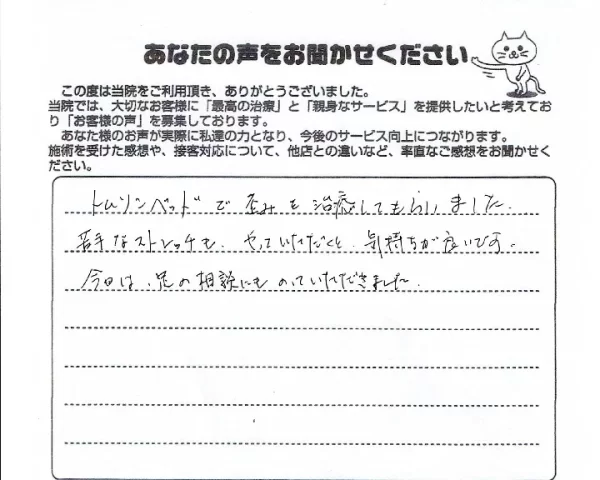 あなたの声をお聞かせください
この度は当院をご利用頂き、ありがとうございました。
当院では、大切なお客様に「最高の治療」と「親身なサービス」を提供したいと考えてお
り「お客様の声」を募集しております。
あなた様のお声が実際に私達の力となり、今後のサービス向上につながります。
施術を受けた感想や、接客対応について、他店との違いなど、率直なご感想をお聞かせく
ださい。
トムソンベッドで歪みを治療してもらいました。
苦手なストレッチも、やっていただくと、気持ちが良いです。
今日は、足の相談にものっていただきました。